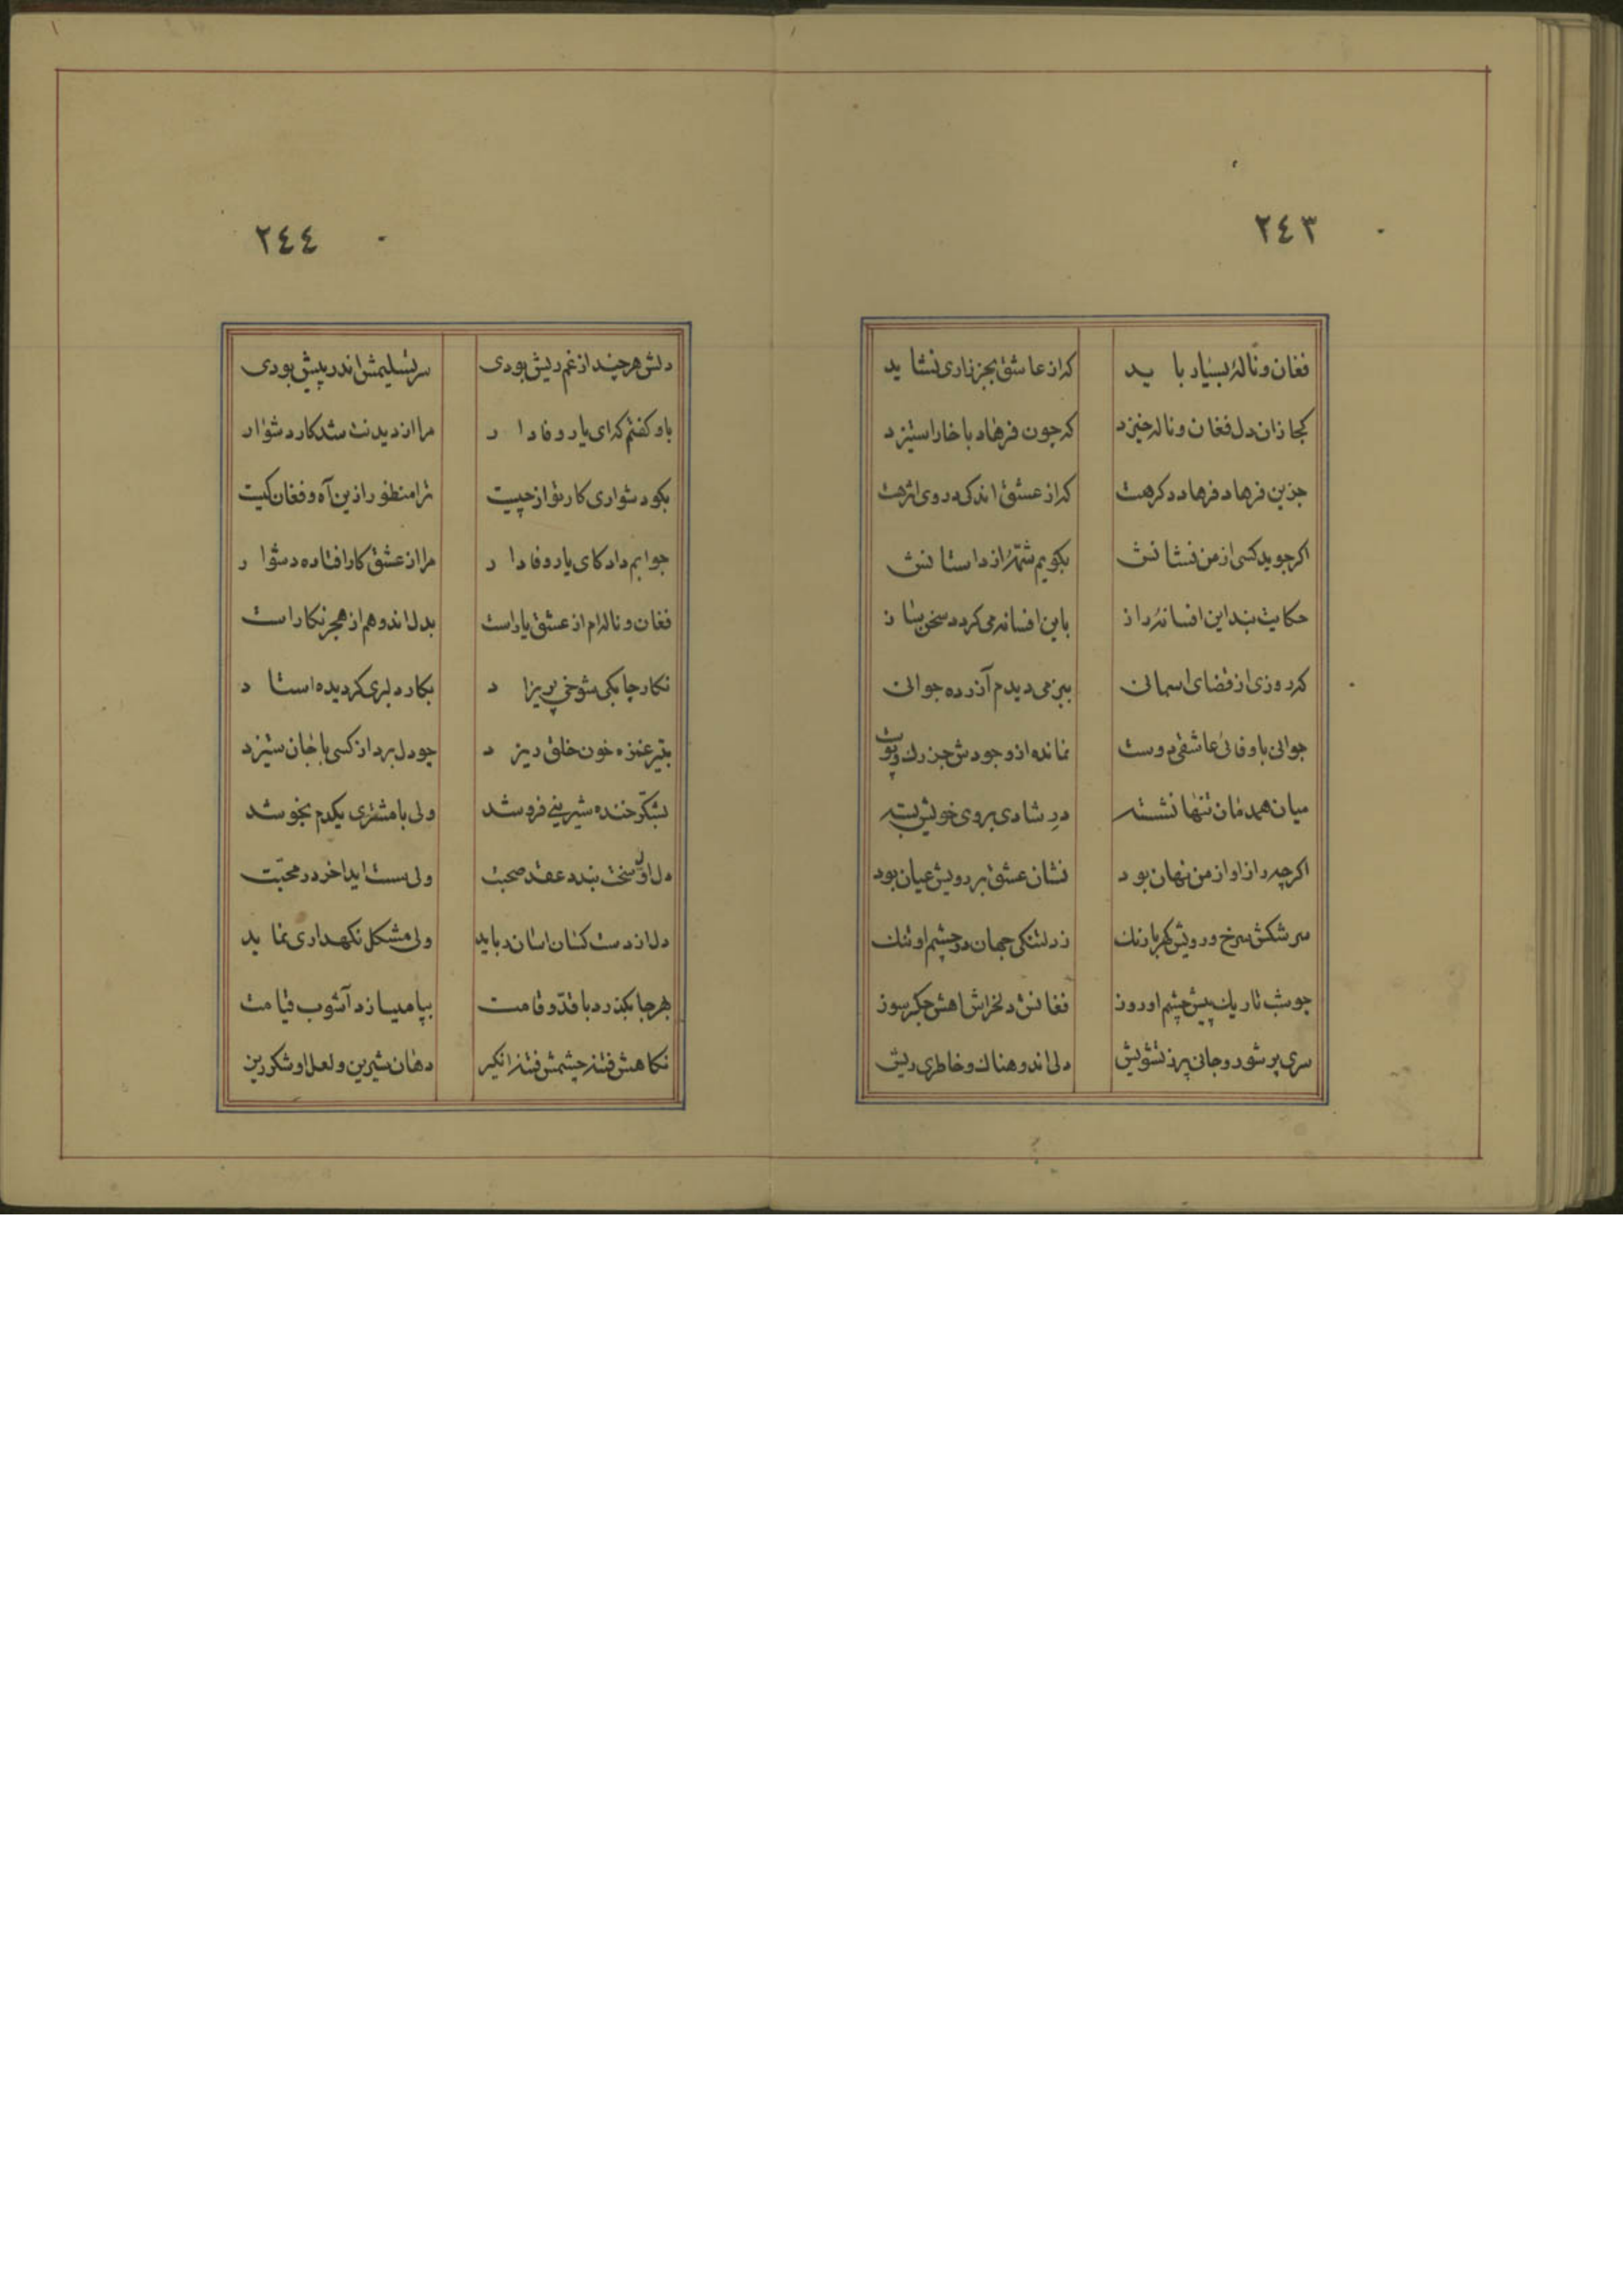 ٢٤٣
فغان و نالهٔ بسیار باید که از عاشق بجز زاری نشاید
کجا زان دل فغان و ناله خیزد که چون فرهاد با خارا ستیزد
جزین فرهاد فرهاد دکر هست که از عشق اندکی در وی اثر هست
اکر جوید کسی از من نشانش بکویم شمّهٔ از داستانش
حکایت بند این افسانهٔ راز باین افسانه می کردد سخن ساز
که روزی از قضای اسمانی ببزمی دیدم آزرده جوانی
جوانی با وفائی عاشقی دوست نمانده از وجودش جز رك و پوست
میان همدمان تنها نشسته درِ شادی بروی خویش بسته
اکرچه راز او از من نهان بود نشان عشق بر رویش عیان بود
سرشکش سرخ و رویش کهربا رنك ز دلتنکی جهان در چشم او تنك
چو شب تاریك پیش چشم او روز فغانش دلخراش اهش جکرسوز
سری پر شور و جانی پر ز تشویش دلی اندوهناك و خاطری ریش
٢٤٤
دلش هر چند از غم ریش بودی سر تسلیمش اندر پیش بودی
باو کفتم که ای یار وفادار مرا از دیدنت شد کار دشوار
بکو دشواری کار تو از چیست ترا منظور ازین آه و فغان کیست
جوابم داد کای یار وفادار مرا از عشق کار افتاده دشوار
فغان و ناله ام از عشق یار است بدل اندوهم از هجر نکار است
نکار چابکی شوخی پریزاد بکار دلبری کردیده استاد
بتیر غمزه خون خلق ریزد چو دل برد از کسی با جان ستیزد
بشکّر خنده شیرینی فروشد ولی با مشتری یکدم نجوشد
دل اوّل سخت بندد عقد صحبت ولی سست اید اخر در محبّت
دل از دست کسان اسان رباید ولی مشکل نکهداری نماید
بهرجا بکذرد با قدّ و قامت بپا میسازد آشوب قیامت
نکاهش فتنه چشمش فتنه انکیز دهان شیرین و لعل او شکرریز